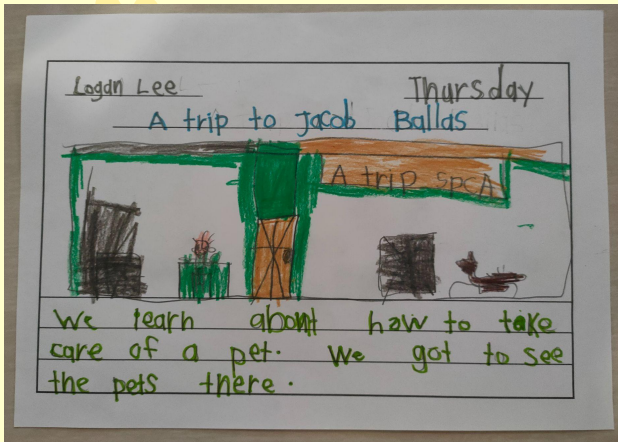 Logan Lee
Thursday
A trip to Jacob Ballas
A trip SPCA
We learn about how to take
care of a pet. We got to see
the pets there.